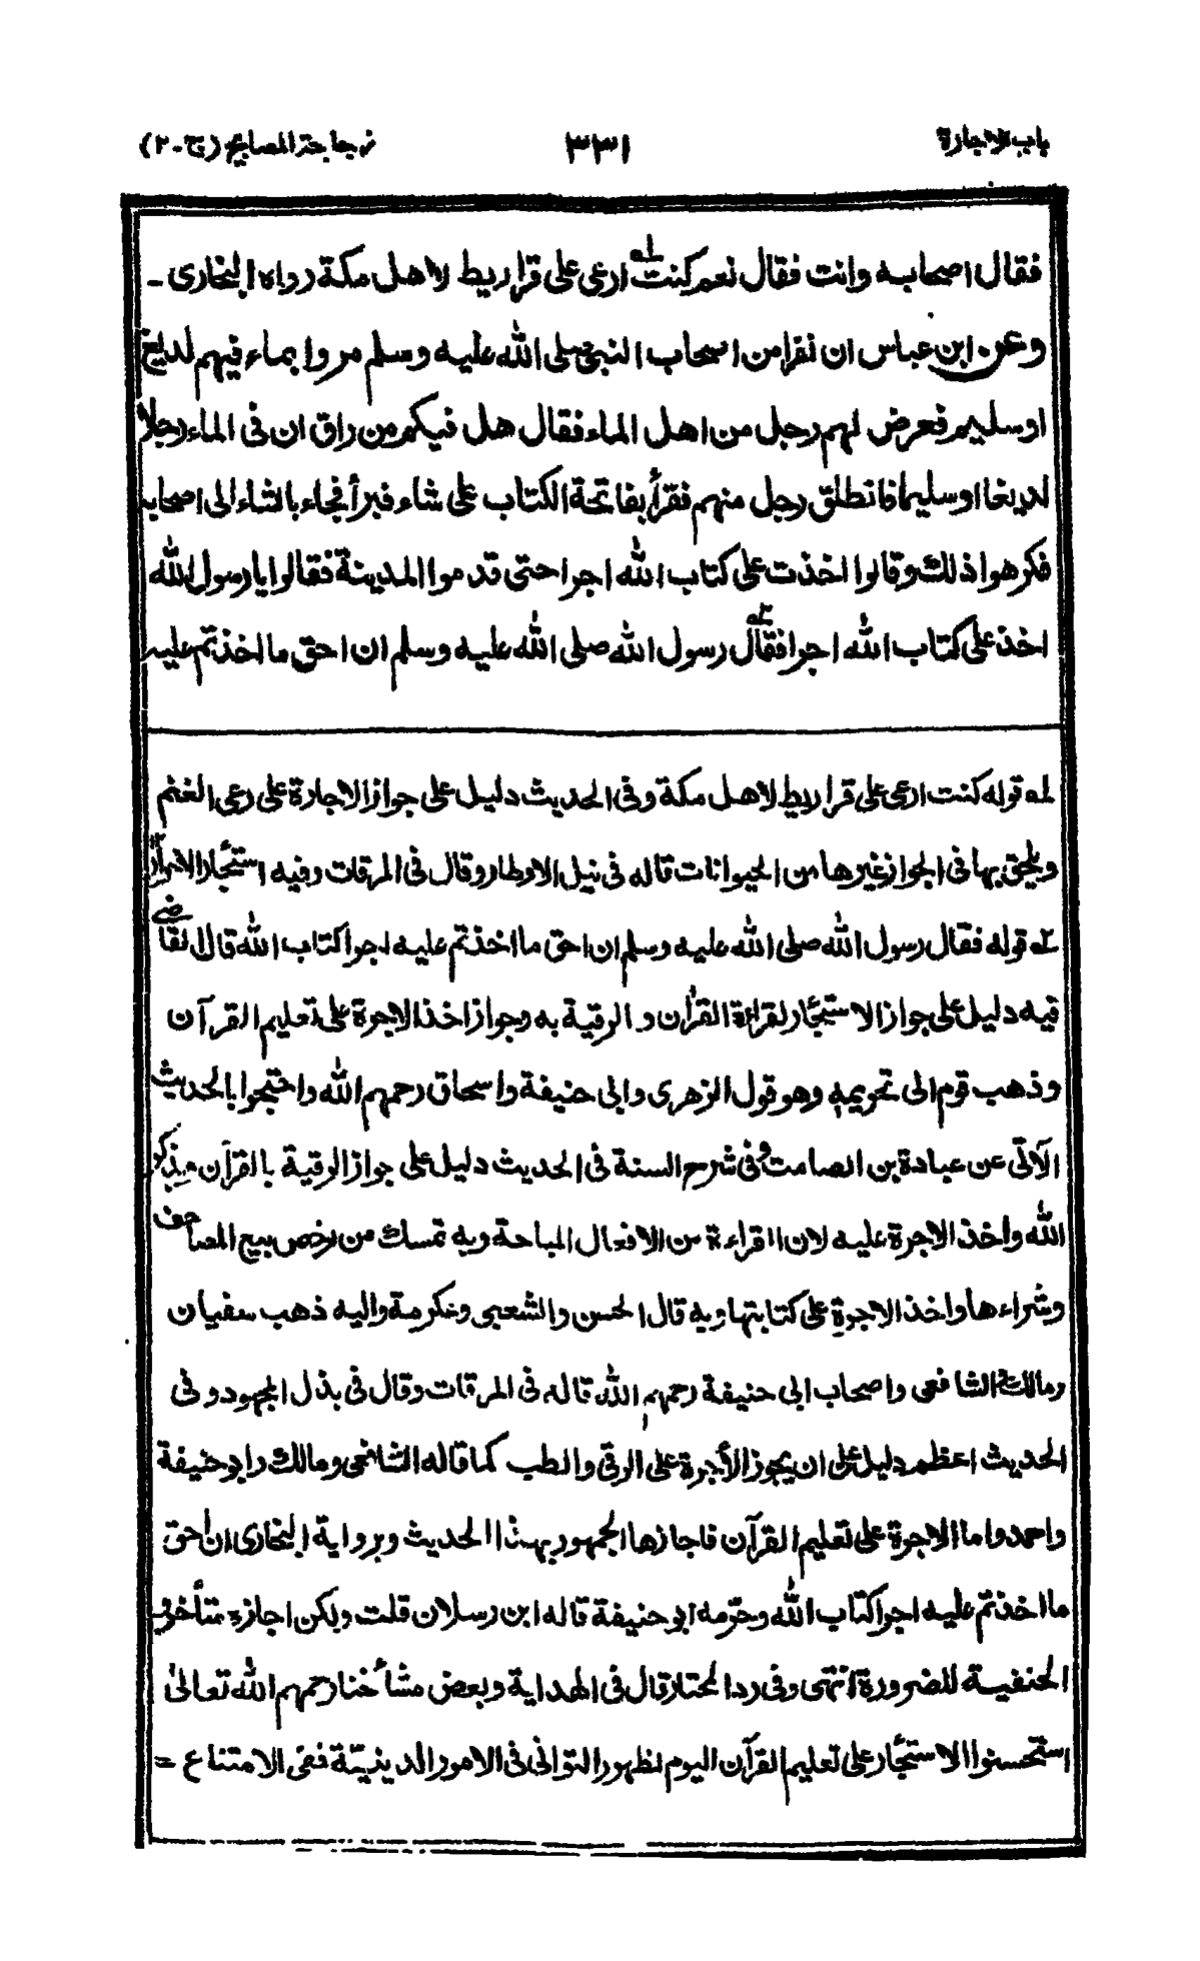 باب الاجارة
٣٣١
زجاجة المصابيح (ج-٢)
فقال اصحابه وانت فقال نعم كنت له ارعى على قراريط لاهل مكة رواه البخارى -
وعن ابن عباس ان نفرا من اصحاب النبى صلى الله عليه وسلم مروا بماء فيهم لديغ
او سليم فعرض لهم رجل من اهل الماء فقال هل فيكم من راق ان فى الماء رجلا
لديغا او سليما فانطلق رجل منهم فقرأ بفاتحة الكتاب على شاء فبرأ فجاء بالشاء الى اصحابه
فكرهوا ذلك وقالوا اخذت على كتاب الله اجرا حتى قدموا المدينة فقالوا يا رسول الله
اخذ على كتاب الله اجرا فقال رسول الله صلى الله عليه وسلم ان احق ما اخذتم عليه
له قوله كنت ارعى على قراريط لاهل مكة وفى الحديث دليل على جواز الاجارة على رعى الغنم
ويلحق بها فى الجواز غيرها من الحيوانات قاله فى نيل الاوطار وقال فى المرقات وفيه استئجار الاحرار
ته قوله فقال رسول الله صلى الله عليه وسلم ان احق ما اخذتم عليه اجرا كتاب الله قال القاضى
فيه دليل على جواز الاستئجار لقراءة القرآن و الرقية به وجواز اخذ الاجرة على تعليم القرآن
وذهب قوم الى تحريمه وهو قول الزهرى وابى حنيفة واسحاق رحمهم الله واحتجوا بالحديث
الآتى عن عبادة بن الصامت وفى شرح السنة فى الحديث دليل على جواز الرقية بالقرآن وبذكر
الله واخذ الاجرة عليه لان القراءة من الافعال المباحة وبه تمسك من رخص بيع المصاحف
وشراءها واخذ الاجرة على كتابتها وبه قال الحسن والشعبى وعكرمة واليه ذهب سفيان
ومالك والشافعى واصحاب ابى حنيفة رحمهم الله قاله فى المرقات وقال فى بذل المجهود وفى
الحديث اعظم دليل على ان يجوز الأجرة على الرقى والطب كما قاله الشافعى ومالك وابو حنيفة
واحمد واما الاجرة على تعليم القرآن فاجازها الجمهور بهذا الحديث وبرواية البخارى ان احق
ما اخذتم عليه اجرا كتاب الله وحرّمه ابو حنيفة قاله ابن رسلان قلت ولكن اجازه متأخرو
الحنفية للضرورة انتهى وفى رد المحتار قال فى الهداية وبعض مشائخنا رحمهم الله تعالى
استحسنوا الاستئجار على تعليم القرآن اليوم لظهور التوانى فى الامور الدينيّة ففى الامتناع =